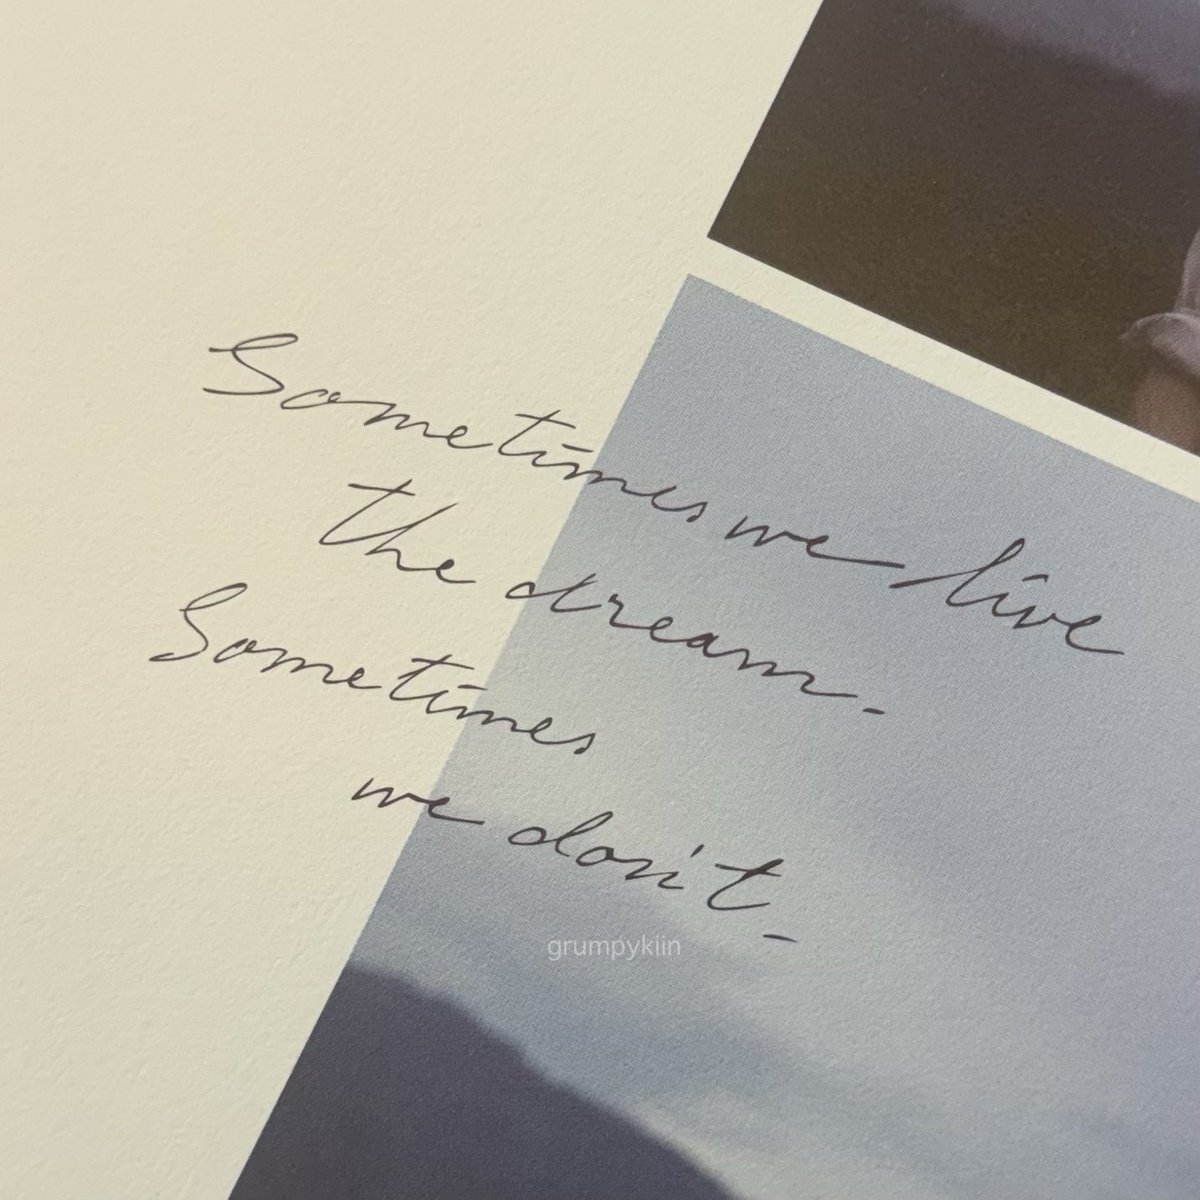 Sometimes we live
the dream.
Sometimes
we don't.
grumpykiin